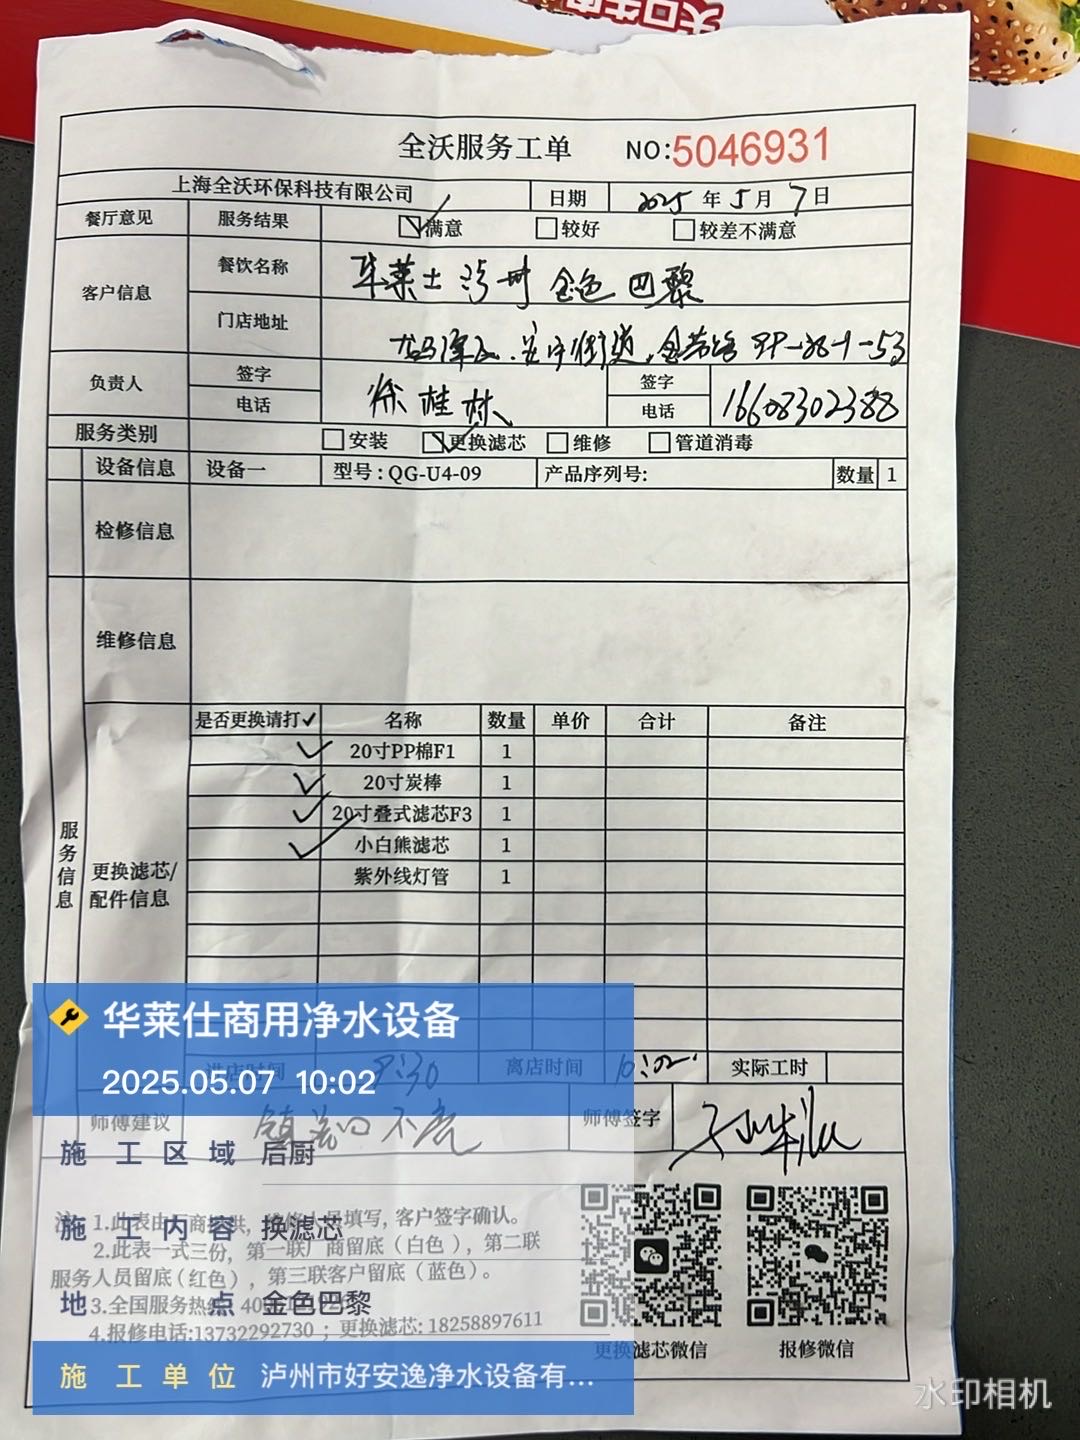 全沃服务工单 NO:5046931
上海全沃环保科技有限公司 日期 2025年5月7日
餐厅意见 服务结果 满意 较好 较差不满意
客户信息 餐饮名称 华莱士泸州金色巴黎
门店地址
负责人 签字 徐桂林 签字
电话 电话 16608302388
服务类别 安装 更换滤芯 维修 管道消毒
设备信息 设备一 型号:QG-U4-09 产品序列号: 数量 1
检修信息
维修信息
是否更换请打✓ 名称 数量 单价 合计 备注
✓ 20寸PP棉F1 1
✓ 20寸炭棒 1
✓ 20寸叠式滤芯F3 1
✓ 小白熊滤芯 1
紫外线灯管 1
服务信息
更换滤芯/
配件信息
进店时间 9:30 离店时间 10:02 实际工时
师傅建议 师傅签字
注:1.此表由厂商提供,维修人员填写,客户签字确认。
2.此表一式三份,第一联厂商留底(白色),第二联
服务人员留底(红色),第三联客户留底(蓝色)。
3.全国服务热线
4.报修电话:13732292730;更换滤芯:18258897611
更换滤芯微信 报修微信
华莱仕商用净水设备
2025.05.07 10:02
施工区域 后厨
施工内容 换滤芯
地点 金色巴黎
施工单位 泸州市好安逸净水设备有...
水印相机